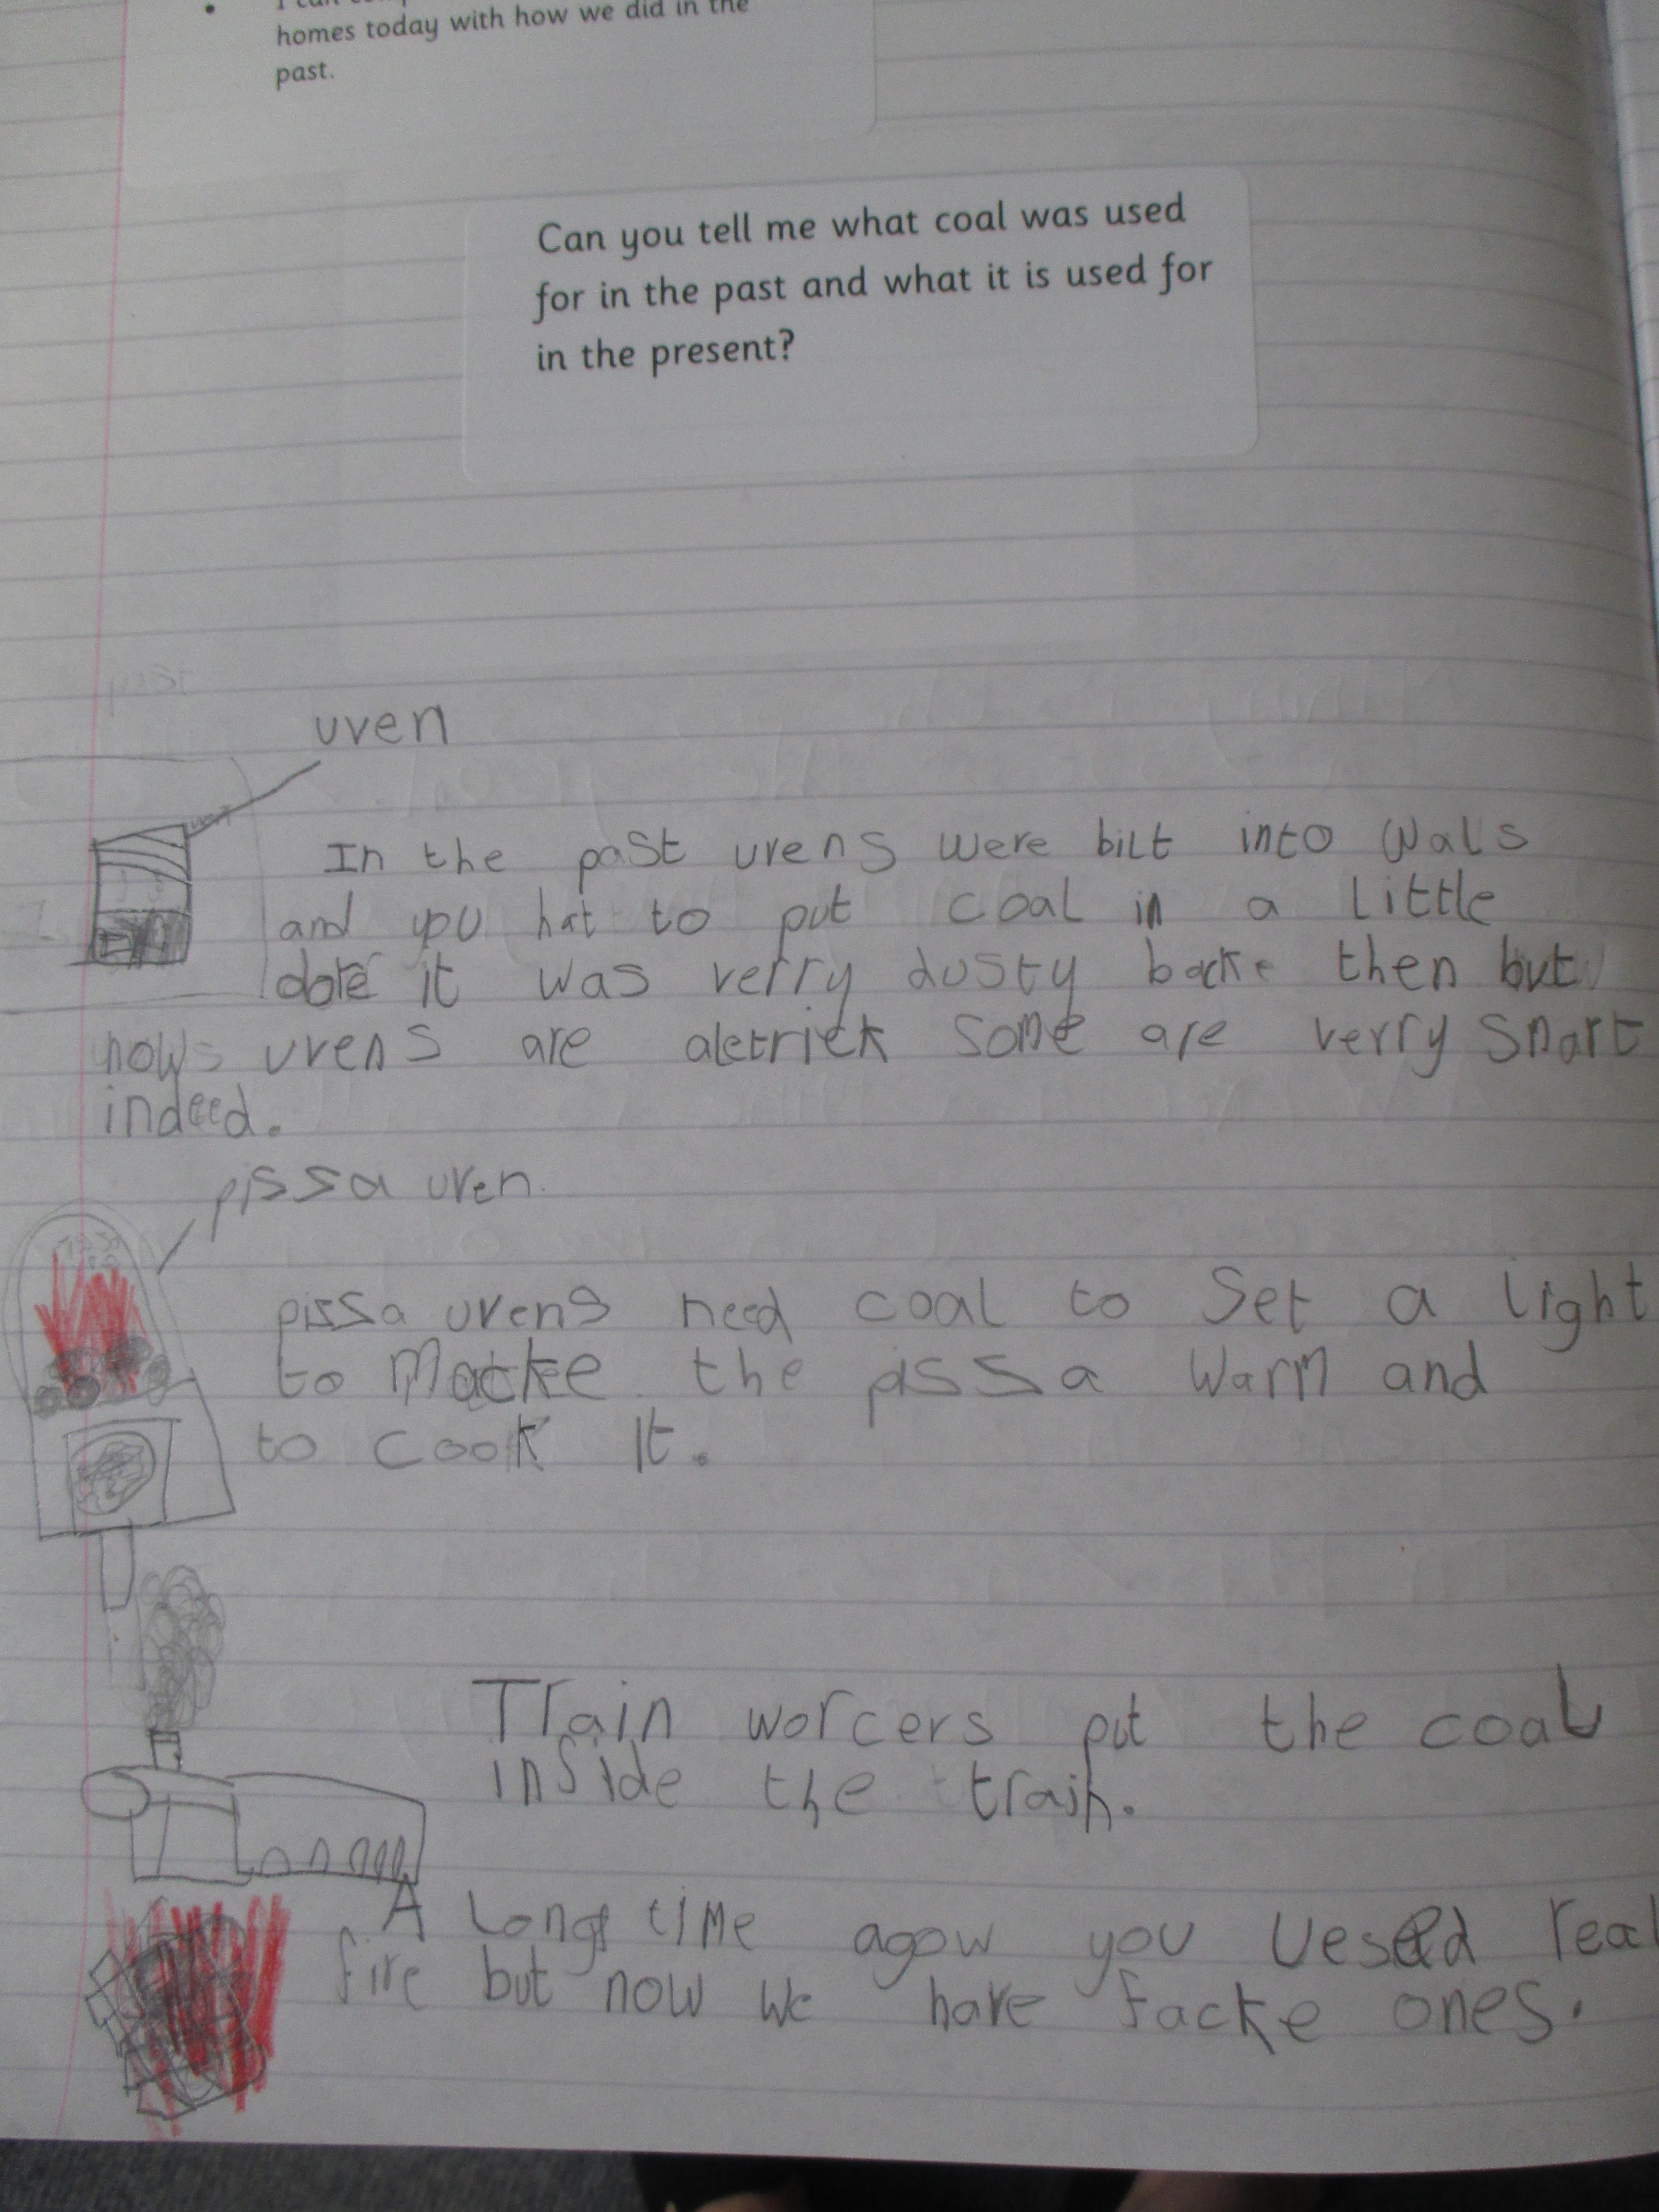 homes today with how we did in the
past.
Can you tell me what coal was used
for in the past and what it is used for
in the present?
past
uven
In the past uvens were bilt into Wals
and you hat to put coal in a little
it was verry dusty backe then but
nows uvens are alectrick some are verry smart
indeed.
pissa uven.
pissa uvens need coal to Set a light
to Macke the pissa warm and
to cook it.
Train worcers put the coal
inside the train.
A Long time agow you Uesed real
fire but now we have facke ones.